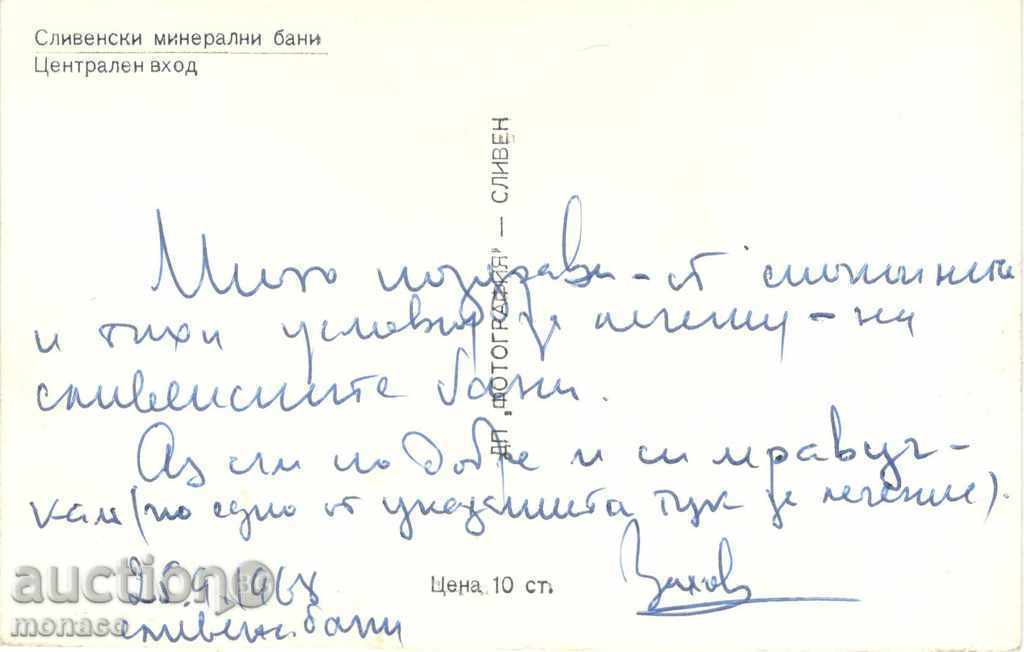 Сливенски минерални бани
Централен вход
ДП „ФОТОГРАФИЯ" — СЛИВЕН
Много поздрави – от спокойните
и тихи условия за лечение – на
сливенските бани.
Аз съм по добре и си
кам (по едно от указанията тук за лечение).
1968
Цена 10 ст.
сливенс. бани
auction.bg
monaco